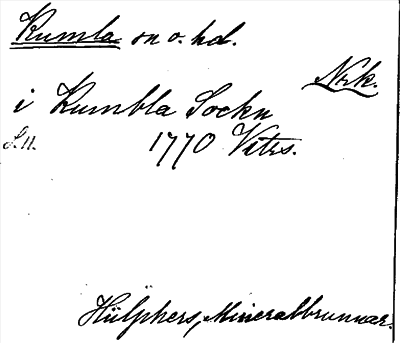 Kumla sn o. hd.
Nrk.
i Kumbla Sockn
S.11. 1770 Vetrs.
Hülphers, Mineralbrunnar.